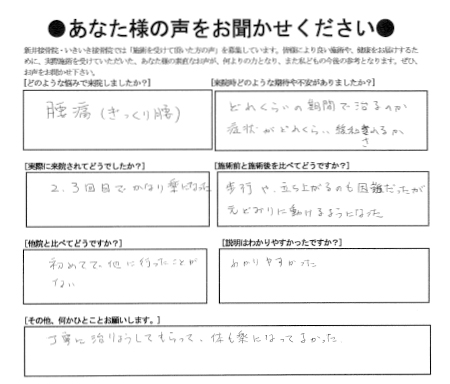 ●あなた様の声をお聞かせください●
新井接骨院・いきいき接骨院では「施術を受けて頂いた方の声」を募集しています。皆様により良い施術や、健康をお届けするた
めに、実際施術を受けていただいた、あなた様の素直なお声が、何よりの力となり、また私どもの今後の参考となります。ぜひ、
お声をお聞かせ下さい。
[どのような悩みで来院しましたか？]
腰痛(ぎっくり腰)
[来院時どのような期待や不安がありましたか？]
どれくらいの期間で治るのか
症状がどれくらい緩和されるか
[実際に来院されてどうでしたか？]
2、3回目でかなり楽になった
[施術前と施術後を比べてどうですか？]
歩行や、立ち上がるのも困難だったが
元どおりに動けるようになった
[他院と比べてどうですか？]
初めてで、他に行ったことが
ない
[説明はわかりやすかったですか？]
わかりやすかった
[その他、何かひとことお願いします。]
丁寧に治りょうしてもらって、体も楽になってよかった